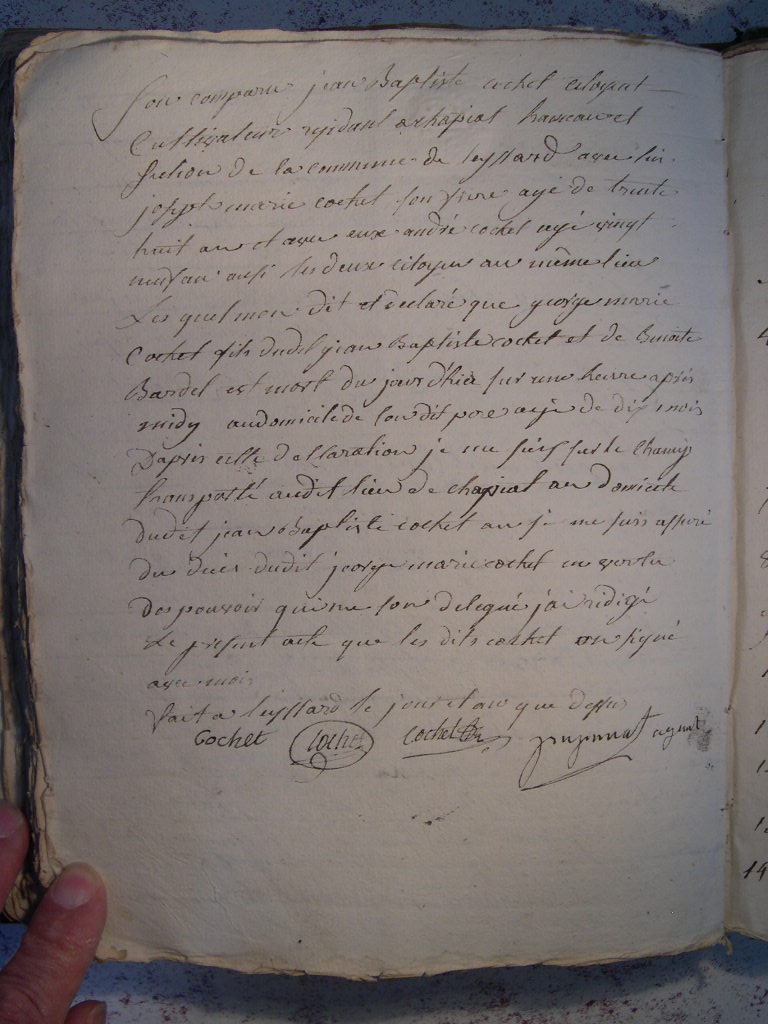 son comparu jean Baptiste cochet citoyent
Cultivateur residant a chapiat hameau et
section de la commune de leyssard avec lui
joseph marie cochet son frere agé de trente
huit an et avec eux andré cochet agé vingt
neuf an ausi les deux citoyen au même lieu
Les quel mon dit et declaré que george marie
Cochet fils dudit jean Baptiste cochet et de Benoite
Bardel est mort du jour d'hier sur une heure apres
midy au domicile de son dit pere agé de dix mois
D'apres cette declaration je me suis sur le Champ
transporté audit lieu de chapiat au domicile
dudit jean Baptiste cochet au je me suis assuré
du deces dudit george marie cochet en vertu
Des pouvoir qui me son delegué j'ai redigé
Le present acte que les dits cochet on signé
avec moi
Fait a leyssard le jour et an que dessus
Cochet cochet cochet agent